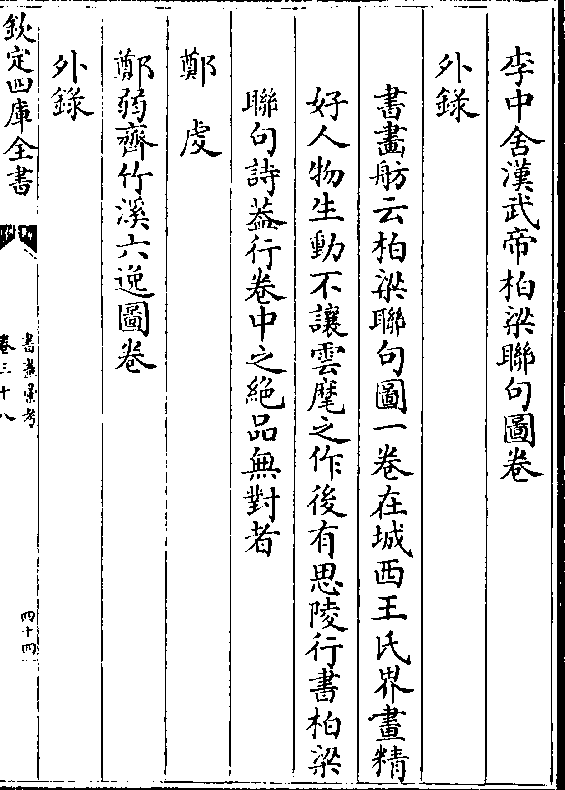 李中舍漢武帝柏梁聯句圖卷
外錄
書畫舫云柏梁聯句圖一卷在城西王氏界畫精
好人物生動不讓雲麾之作後有思陵行書柏梁
聯句詩葢行卷中之絶品無對者
鄭虔
鄭弱齊竹溪六逸圖卷
外錄
欽定四庫全書
書畫彙考
卷三十八
四十四